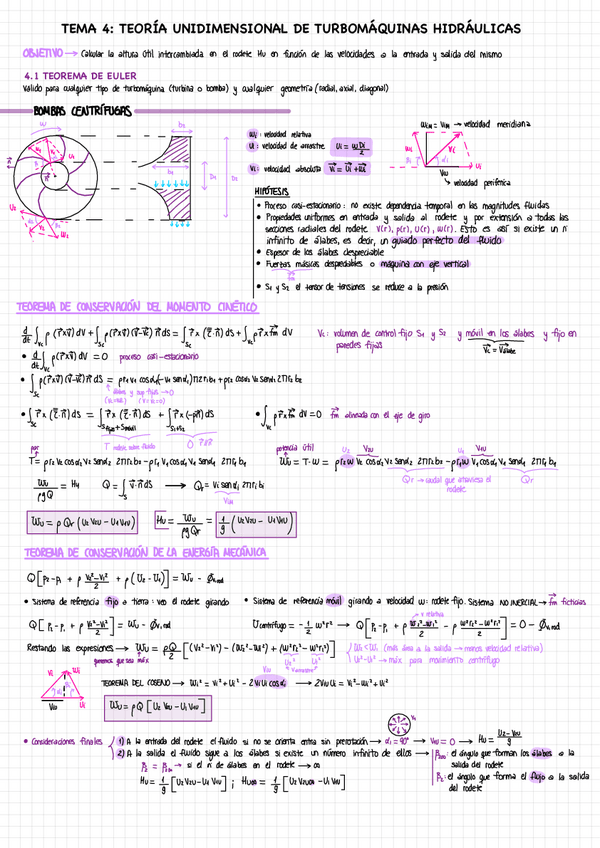 TEMA 4: TEORÍA UNIDIMENSIONAL DE TURBOMÁQUINAS HIDRÁULICAS
OBJETIVO → Calcular la altura útil intercambiada en el rodete Hu en función de las velocidades a la entrada y salida del mismo
4.1 TEOREMA DE EULER
Válido para cualquier tipo de turbomáquina (turbina o bomba) y cualquier geometría (radial, axial, diagonal)
BOMBAS CENTRÍFUGAS
wi: velocidad relativa
ui: velocidad de arrastre ui = ωDi/2
vi: velocidad absoluta v⃗i = u⃗i + w⃗i
→ velocidad meridiana
velocidad periférica
HIPÓTESIS
• Proceso casi-estacionario: no existe dependencia temporal en las magnitudes fluidas
• Propiedades uniformes en entrada y salida al rodete y por extensión a todas las
secciones radiales del rodete V(r), p(r), U(r), W(r). Esto es así si existe un nº
infinito de álabes, es decir, un guiado perfecto del fluido
• Espesor de los álabes despreciable
• Fuerzas másicas despreciables o máquina con eje vertical
• S1 y S2 el tensor de tensiones se reduce a la presión
TEOREMA DE CONSERVACIÓN DEL MOMENTO CINÉTICO
d/dt ∫Vc ρ(r⃗×v⃗) dV + ∫Sc ρ(r⃗×v⃗)(v⃗-v⃗c) n⃗ dS = ∫Sc r⃗×(τ̿·n⃗) dS + ∫Vc ρ r⃗×f⃗m dV
Vc: volumen de control fijo S1 y S2 y móvil en los álabes y fijo en
paredes fijas
• d/dt ∫Vc ρ(r⃗×v⃗) dV = 0 proceso casi-estacionario
• ∫Vc ρ r⃗×f⃗m dV = 0 f⃗m alineada con el eje de giro
T rodete sobre fluido
par
potencia útil
T = ρ r2 V2 cos α2 V2 sen α2 2π r2 b2 - ρ r1 V1 cos α1 V1 sen α1 2π r1 b1
Qr → caudal que atraviesa el
rodete
Qr
Wu/ρgQ = Hu Q = ∫S v⃗·n⃗ dS → Qr = Vi sen αi 2π ri bi
Wu = ρ Qr (U2 V2u - U1 V1u)
Hu = Wu/ρgQr = 1/g (U2 V2u - U1 V1u)
TEOREMA DE CONSERVACIÓN DE LA ENERGÍA MECÁNICA
Q [p2 - p1 + ρ (V2² - V1²)/2 + ρ(U2 - U1)] = Wu - Øv,rod
• Sistema de referencia fijo a tierra: veo el rodete girando
• Sistema de referencia móvil girando a velocidad ω: rodete fijo. Sistema NO INERCIAL → f⃗m ficticias
Q [p2 - p1 + ρ (V2² - V1²)/2] = Wu - Øv,rod
Ucentrífugo = - 1/2 ω² r²
Restando las expresiones → Wu = ρQ/2 [(V2² - V1²) - (W2² - W1²) + (ω² r2² - ω² r1²)]
queremos que sea máx
(más área a la salida → menos velocidad relativa)
→ máx para movimiento centrífugo
TEOREMA DEL COSENO → Wi² = Vi² + Ui² - 2 Vi Ui cos αi → 2 Viu Ui = Vi² - Wi² + Ui²
Wu = ρQ [U2 V2u - U1 V1u]
• Consideraciones finales
1) A la entrada del rodete el fluido si no se orienta entra sin prerrotación → α1 = 90° → V1u = 0 → Hu = U2·V2u/g
2) A la salida el fluido sigue a los álabes si existe un número infinito de ellos
β2 = β2∞ → si el nº de álabes en el rodete → ∞
β2∞: el ángulo que forman los álabes a la
salida del rodete
β2: el ángulo que forma el flujo a la salida
del rodete
Hu = 1/g [U2 V2u - U1 V1u] ; Hu∞ = 1/g [U2 V2u∞ - U1 V1u]